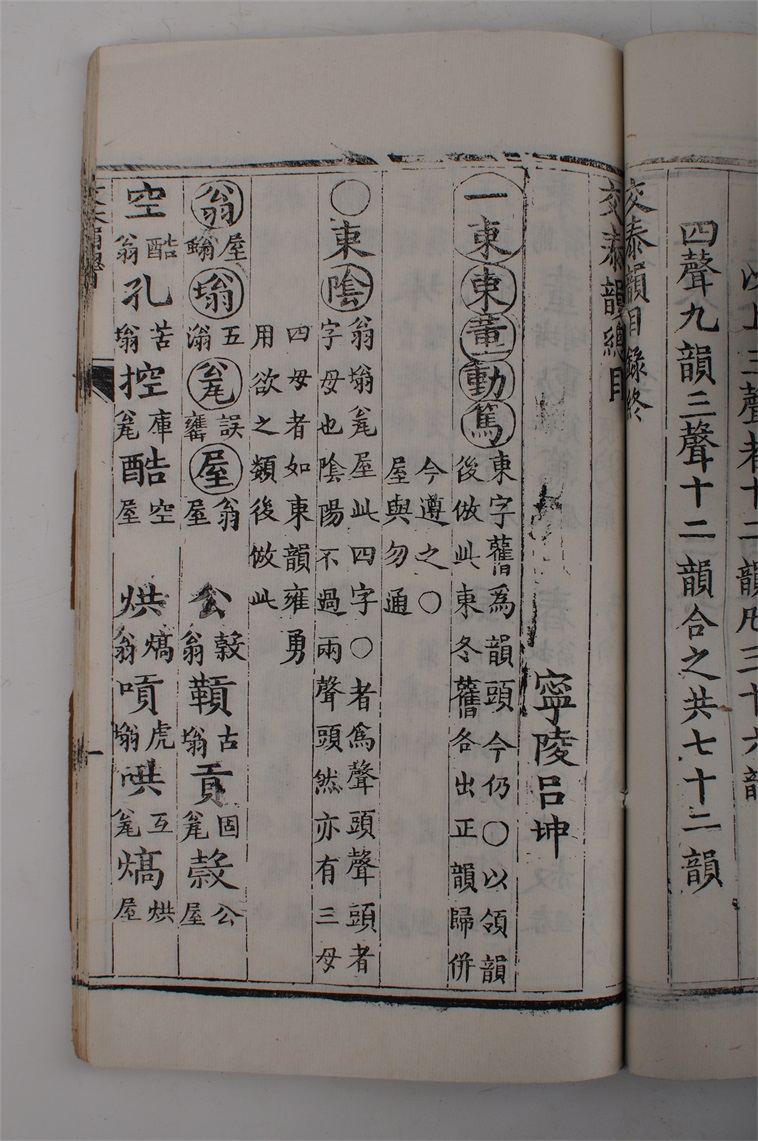 以上三聲者十二韻凡三十六韻
四聲九韻三聲十二韻合之共七十二韻
交泰韻目錄終
交泰韻總目
寧陵呂坤
一東東董動篤
東字舊爲韻頭今仍〇以領韻
後倣此東冬舊各出正韻歸併
今遵之〇
屋與勿通
〇東陰
翁塕瓮屋此四字〇者爲聲頭聲頭者
字母也陰陽不過兩聲頭然亦有三母
四母者如東韻雍勇
用欲之類後倣此
翁屋塕五滃瓮誤屋翁屋 公穀翁古塕貢固瓮穀公屋
空酷翁孔苦塕控庫瓮酷空屋 烘熇翁嗊虎塕哄互瓮熇烘屋
一